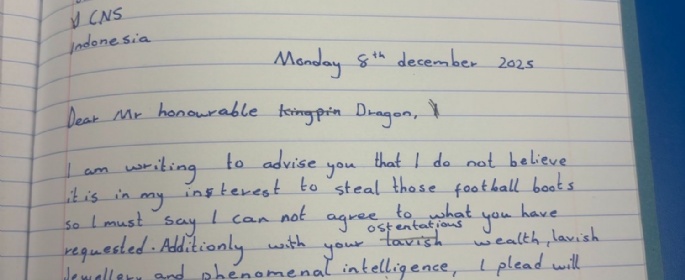 CNS
Indonesia
Monday 8th december 2025
Dear Mr honourable kingpin Dragon,
I am writing to advise you that I do not believe
it is in my insterest to steal those football boots
so I must say I can not agree to what you have
ostentatious
requested. Additionly with your lavish wealth, lavish
jewellery and phenomenal intelligence, I plead will